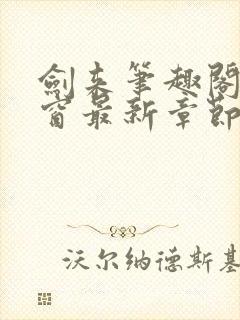 劍来筆趣閣
窗最新章節
沃尔纳德斯基